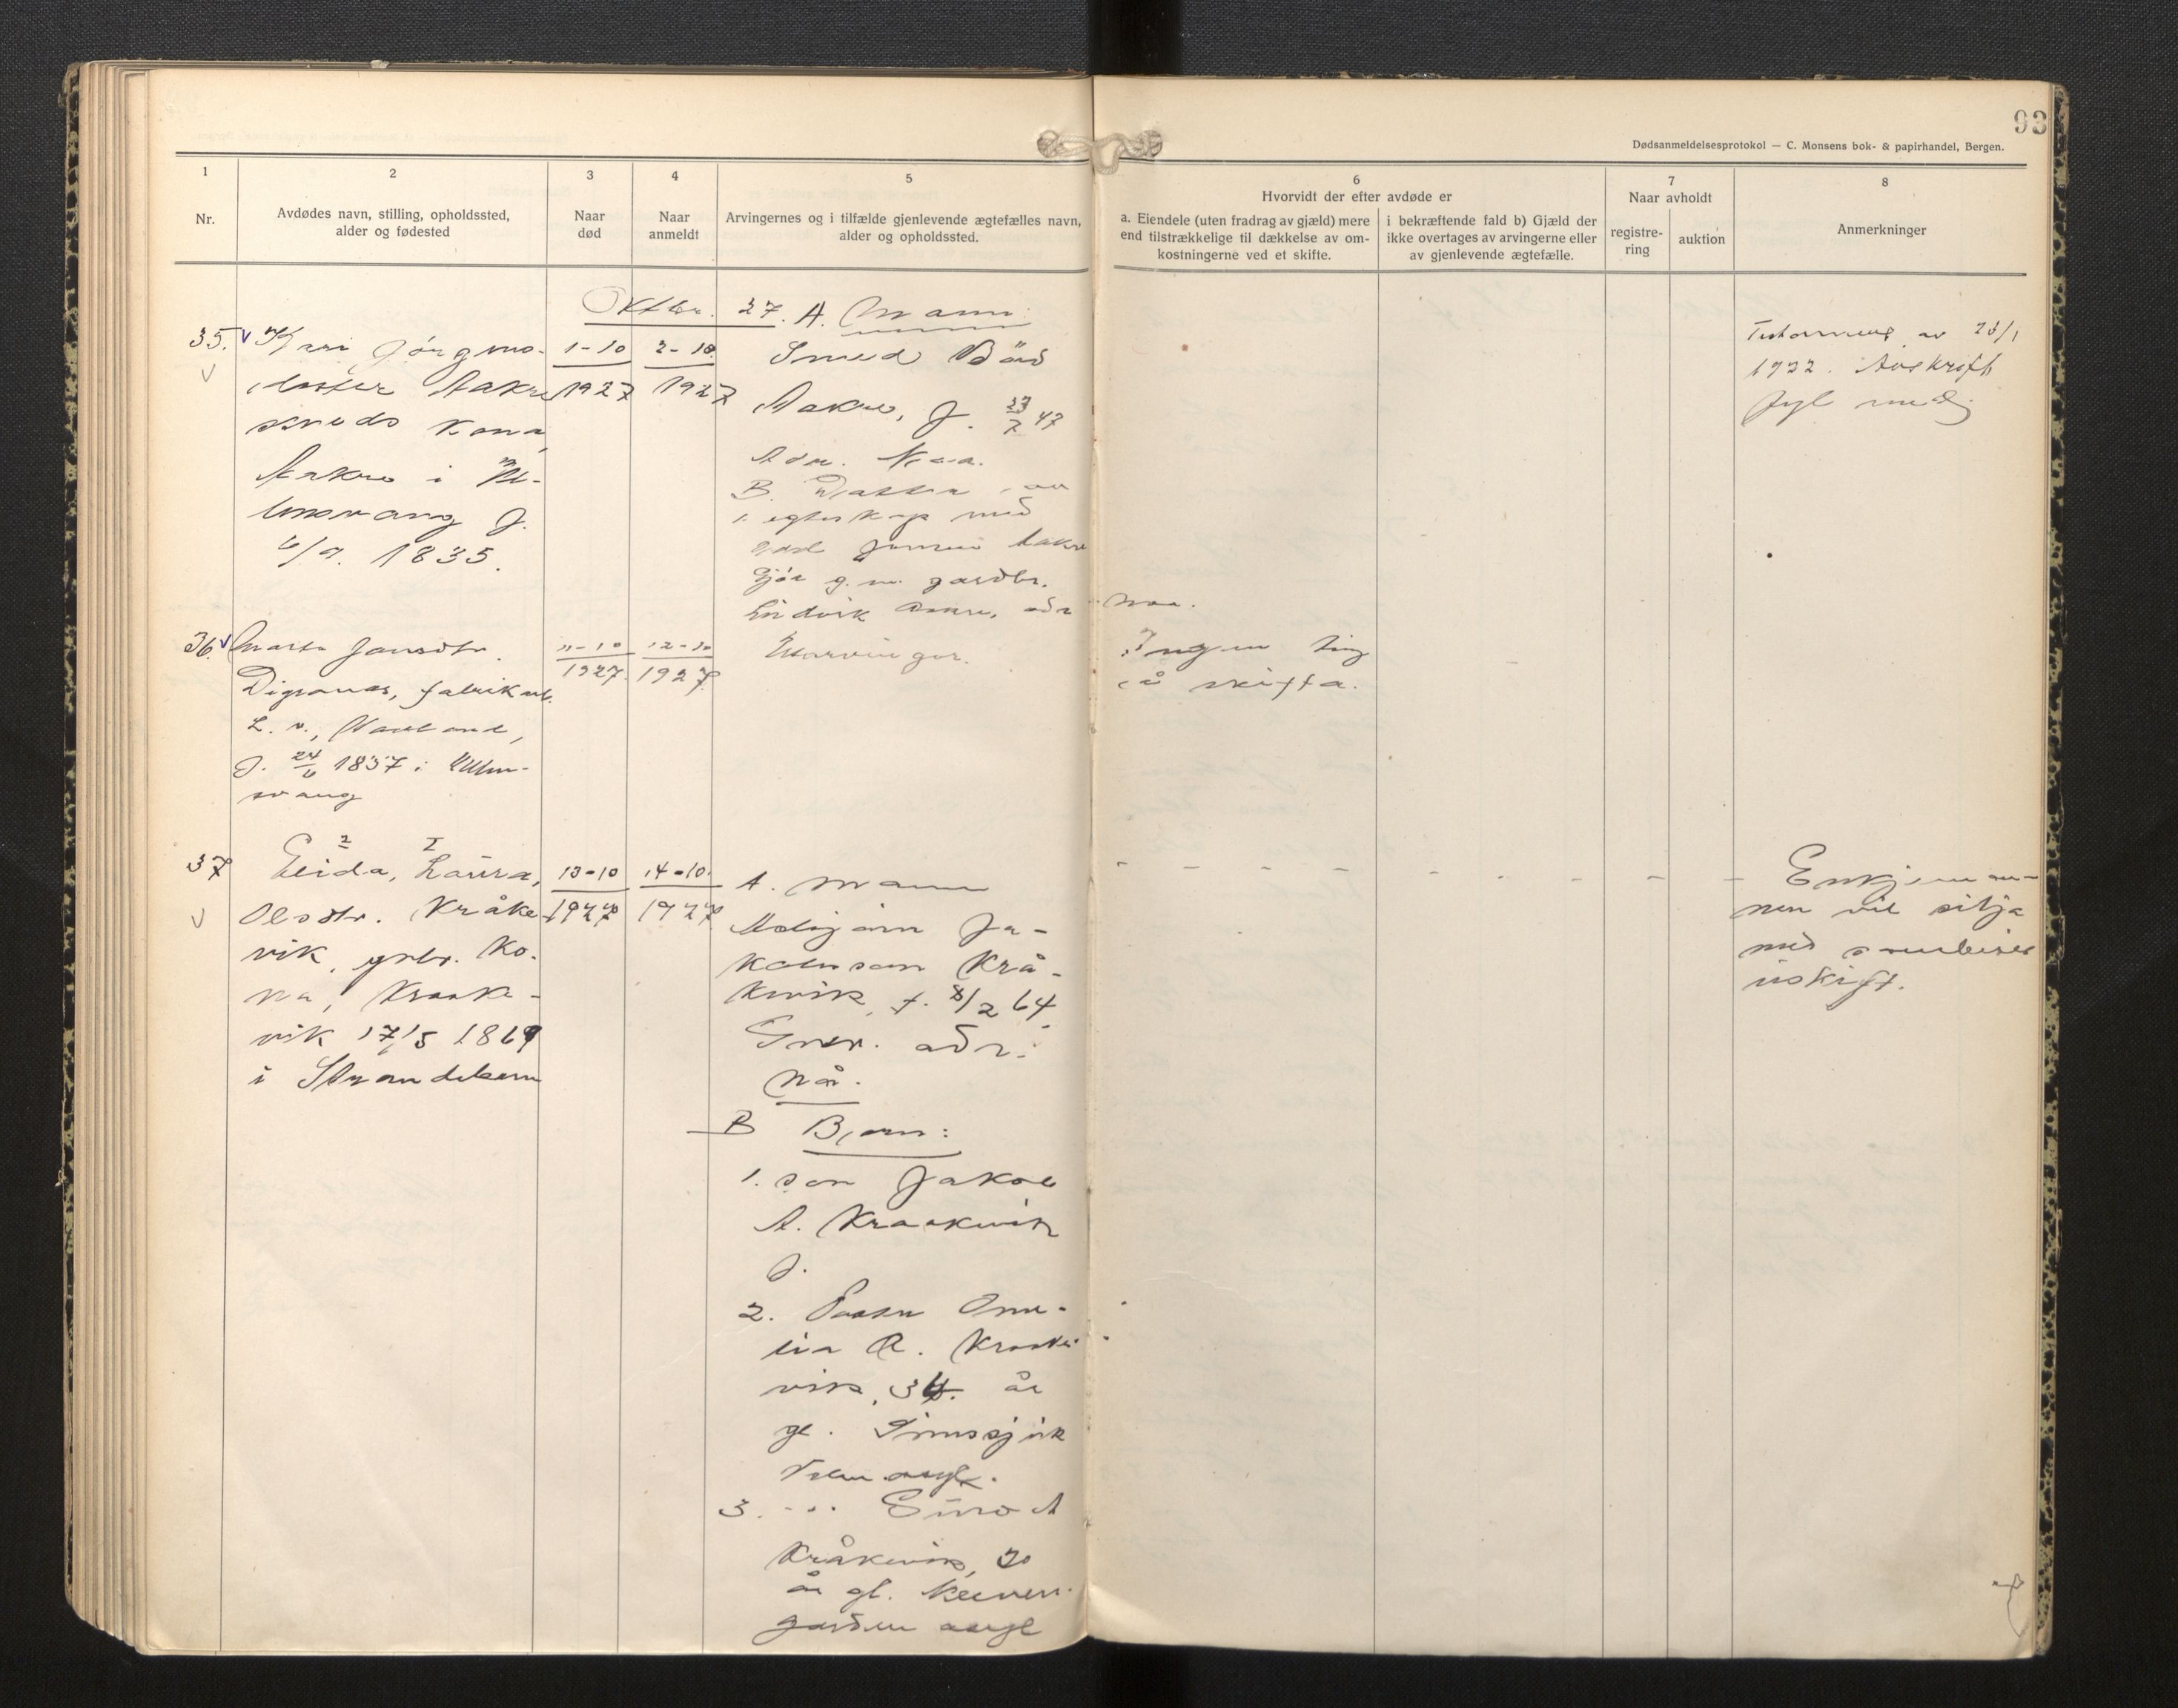 93
Dødsanmeldelsesprotokol — C. Monsens bok- & papirhandel, Bergen.
1
Nr.
2
Avdødes navn, stilling, opholdssted,
alder og fødested
3
Naar
død
4
Naar
anmeldt
5
Arvingernes og i tilfælde gjenlevende ægtefælles navn,
alder og opholdssted.
6
Hvorvidt der efter avdøde er
a. Eiendele (uten fradrag av gjæld) mere
end tilstrækkelige til dækkelse av om-
kostningerne ved et skifte.
i bekræftende fald b) Gjæld der
ikke overtages av arvingerne eller
av gjenlevende ægtefælle.
7
Naar avholdt
registre-
ring
auktion
8
Anmerkninger
Oktbr. 27.
35.
Kari
Aakre
smeds kona,
Aakre i Ul-
lensvang f.
6/9. 1835.
1-10
1927
2-10
1927
A. Mann:
Smed Bård
Aakre, f. 23/7 47
Adr. Naa.
B. Datter av
1. egteskap med
Aakre
g. m. gardbr.
Aakre, adr naa.
av 23/1
1922. Avskrift
fyl med.
36.
Marta Jonsdtr.
Digranes, fabrikarb.
f. 24/6 1837 i Ullen-
svang
11-10
1927.
12-10
1927
Utarvingar.
Ingen ting
å skifta.
37
2 1
Elida, Laura,
Olsdtr. Kråke-
vik, grbr. ko-
na, Kraake-
vik 17/5 1869
i Strandebarm
13-10
1927
14-10
1927
A. Mann
Ja-
kobson Krå-
kevik, f. 8/2 64.
adr.
Nå.
B Born:
1. son Jakob
A. Kraakevik
f.
2. Dotter
A. Kraake-
vik, 34. år
gl.
3. -..
Kråkevik, 20
år gl.
garden
Enkjeman-
nen vil sitja
med sambuet
uskift.